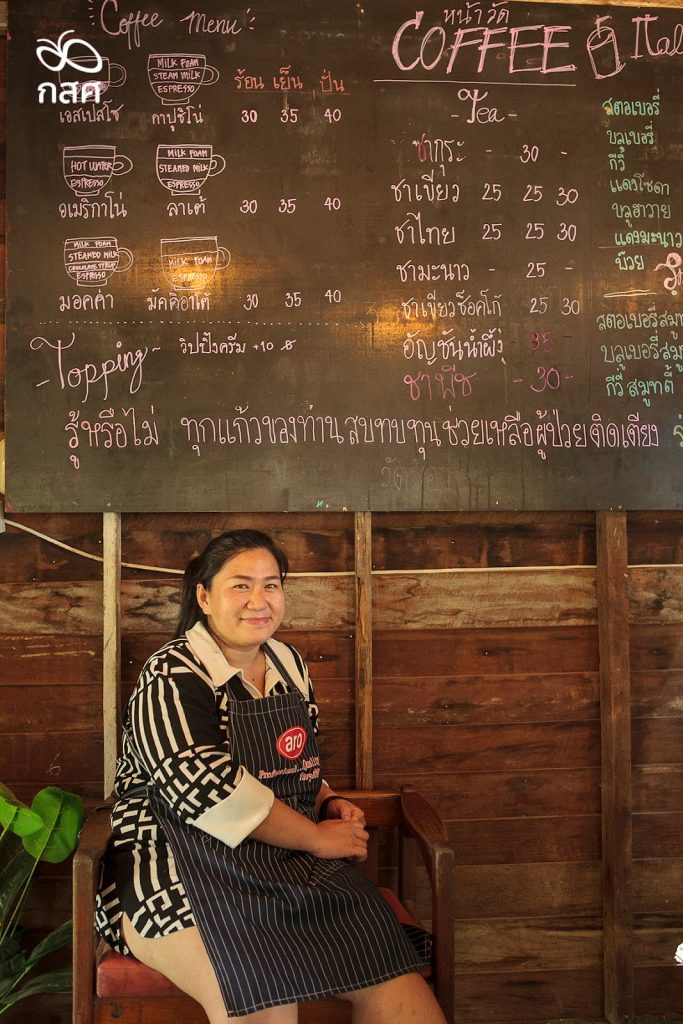 กสศ
Coffee Menu
MILK FOAM
STEAM MILK
ESPRESSO
ร้อน เย็น ปั่น
เอสเปสโซ่ กาปูชิโน่ 30 35 40
HOT WATER
ESPRESSO
MILK FOAM
STEAMED MILK
ESPRESSO
อเมริกาโน่ ลาเต้ 30 35 40
MILK FOAM
STEAMED MILK
CHOCOLATE SYRUP
ESPRESSO
MILK FOAM
ESPRESSO
มอคค่า มัคคิอาโต้ 30 35 40
-Topping- วิปปิ้งครีม +10 ฿
หน้าวัด
COFFEE
-Tea-
ชากุระ - 30 -
ชาเขียว 25 25 30
ชาไทย 25 25 30
ชามะนาว - 25 -
ชาเขียวช็อคโก้ 25 30
อัญชันน้ำผึ้ง - 35 -
ชาพีช - 30 -
Ital
สตอเบอรี่
บลูเบอรี่
กีวี่
แดงโซดา
บลูฮาวาย
แดงมะนาว
บ๊วย
สตอเบอรี่สมู
บลูเบอรี่สมู
กีวี่สมูทตี้
รู้หรือไม่ ทุกแก้วของท่านสบทบทุนช่วยเหลือผู้ป่วยติดเตียง
aro
Professional